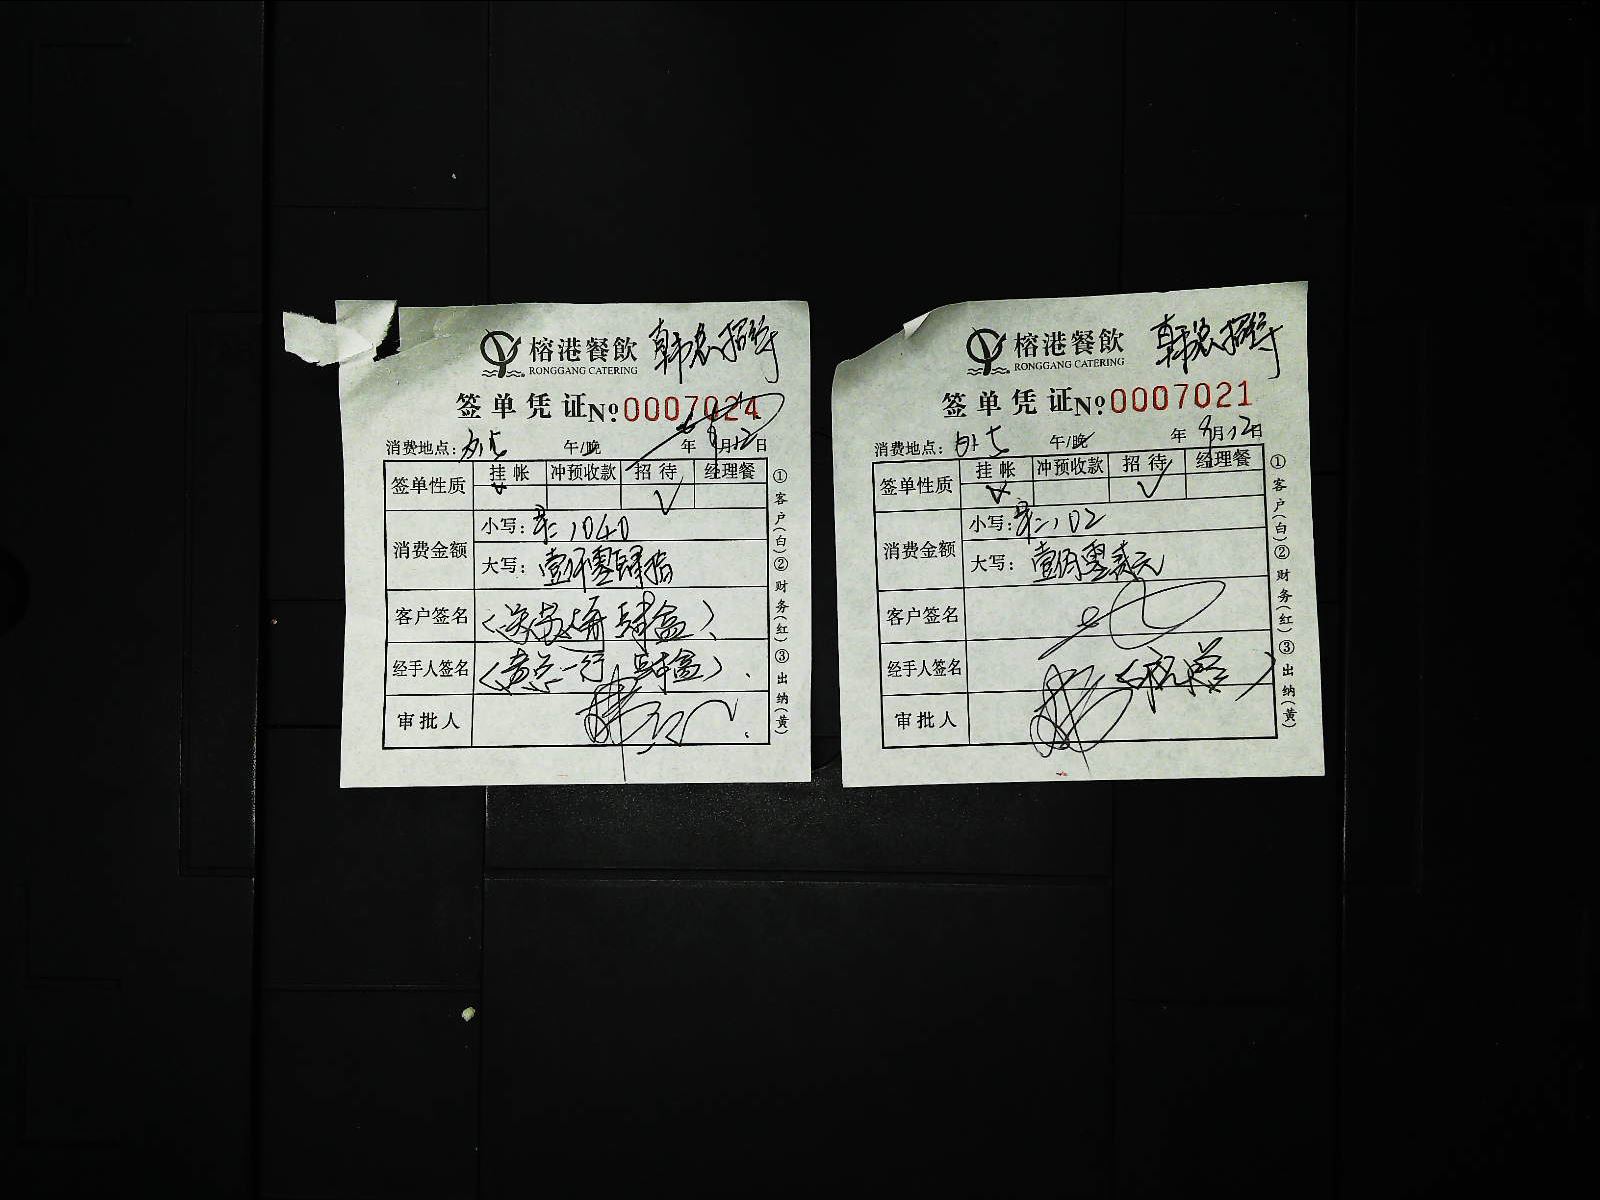 榕港餐飲 韩总招待
RONGGANG CATERING
签单凭证 No 0007024
消费地点: 午/晚 年 9月12日
签单性质 挂帐 冲预收款 招待 经理餐
√ √
消费金额 小写: 1040
大写: 壹仟零肆拾
客户签名
经手人签名 (黄总一行 肆盒)
审批人
①客户(白)②财务(红)③出纳(黄)
榕港餐飲 韩总招待
RONGGANG CATERING
签单凭证 No 0007021
消费地点: 午/晚 年 9月12日
签单性质 挂帐 冲预收款 招待 经理餐
√ √
消费金额 小写: 102
大写: 壹佰零贰元
客户签名
经手人签名
审批人
①客户(白)②财务(红)③出纳(黄)